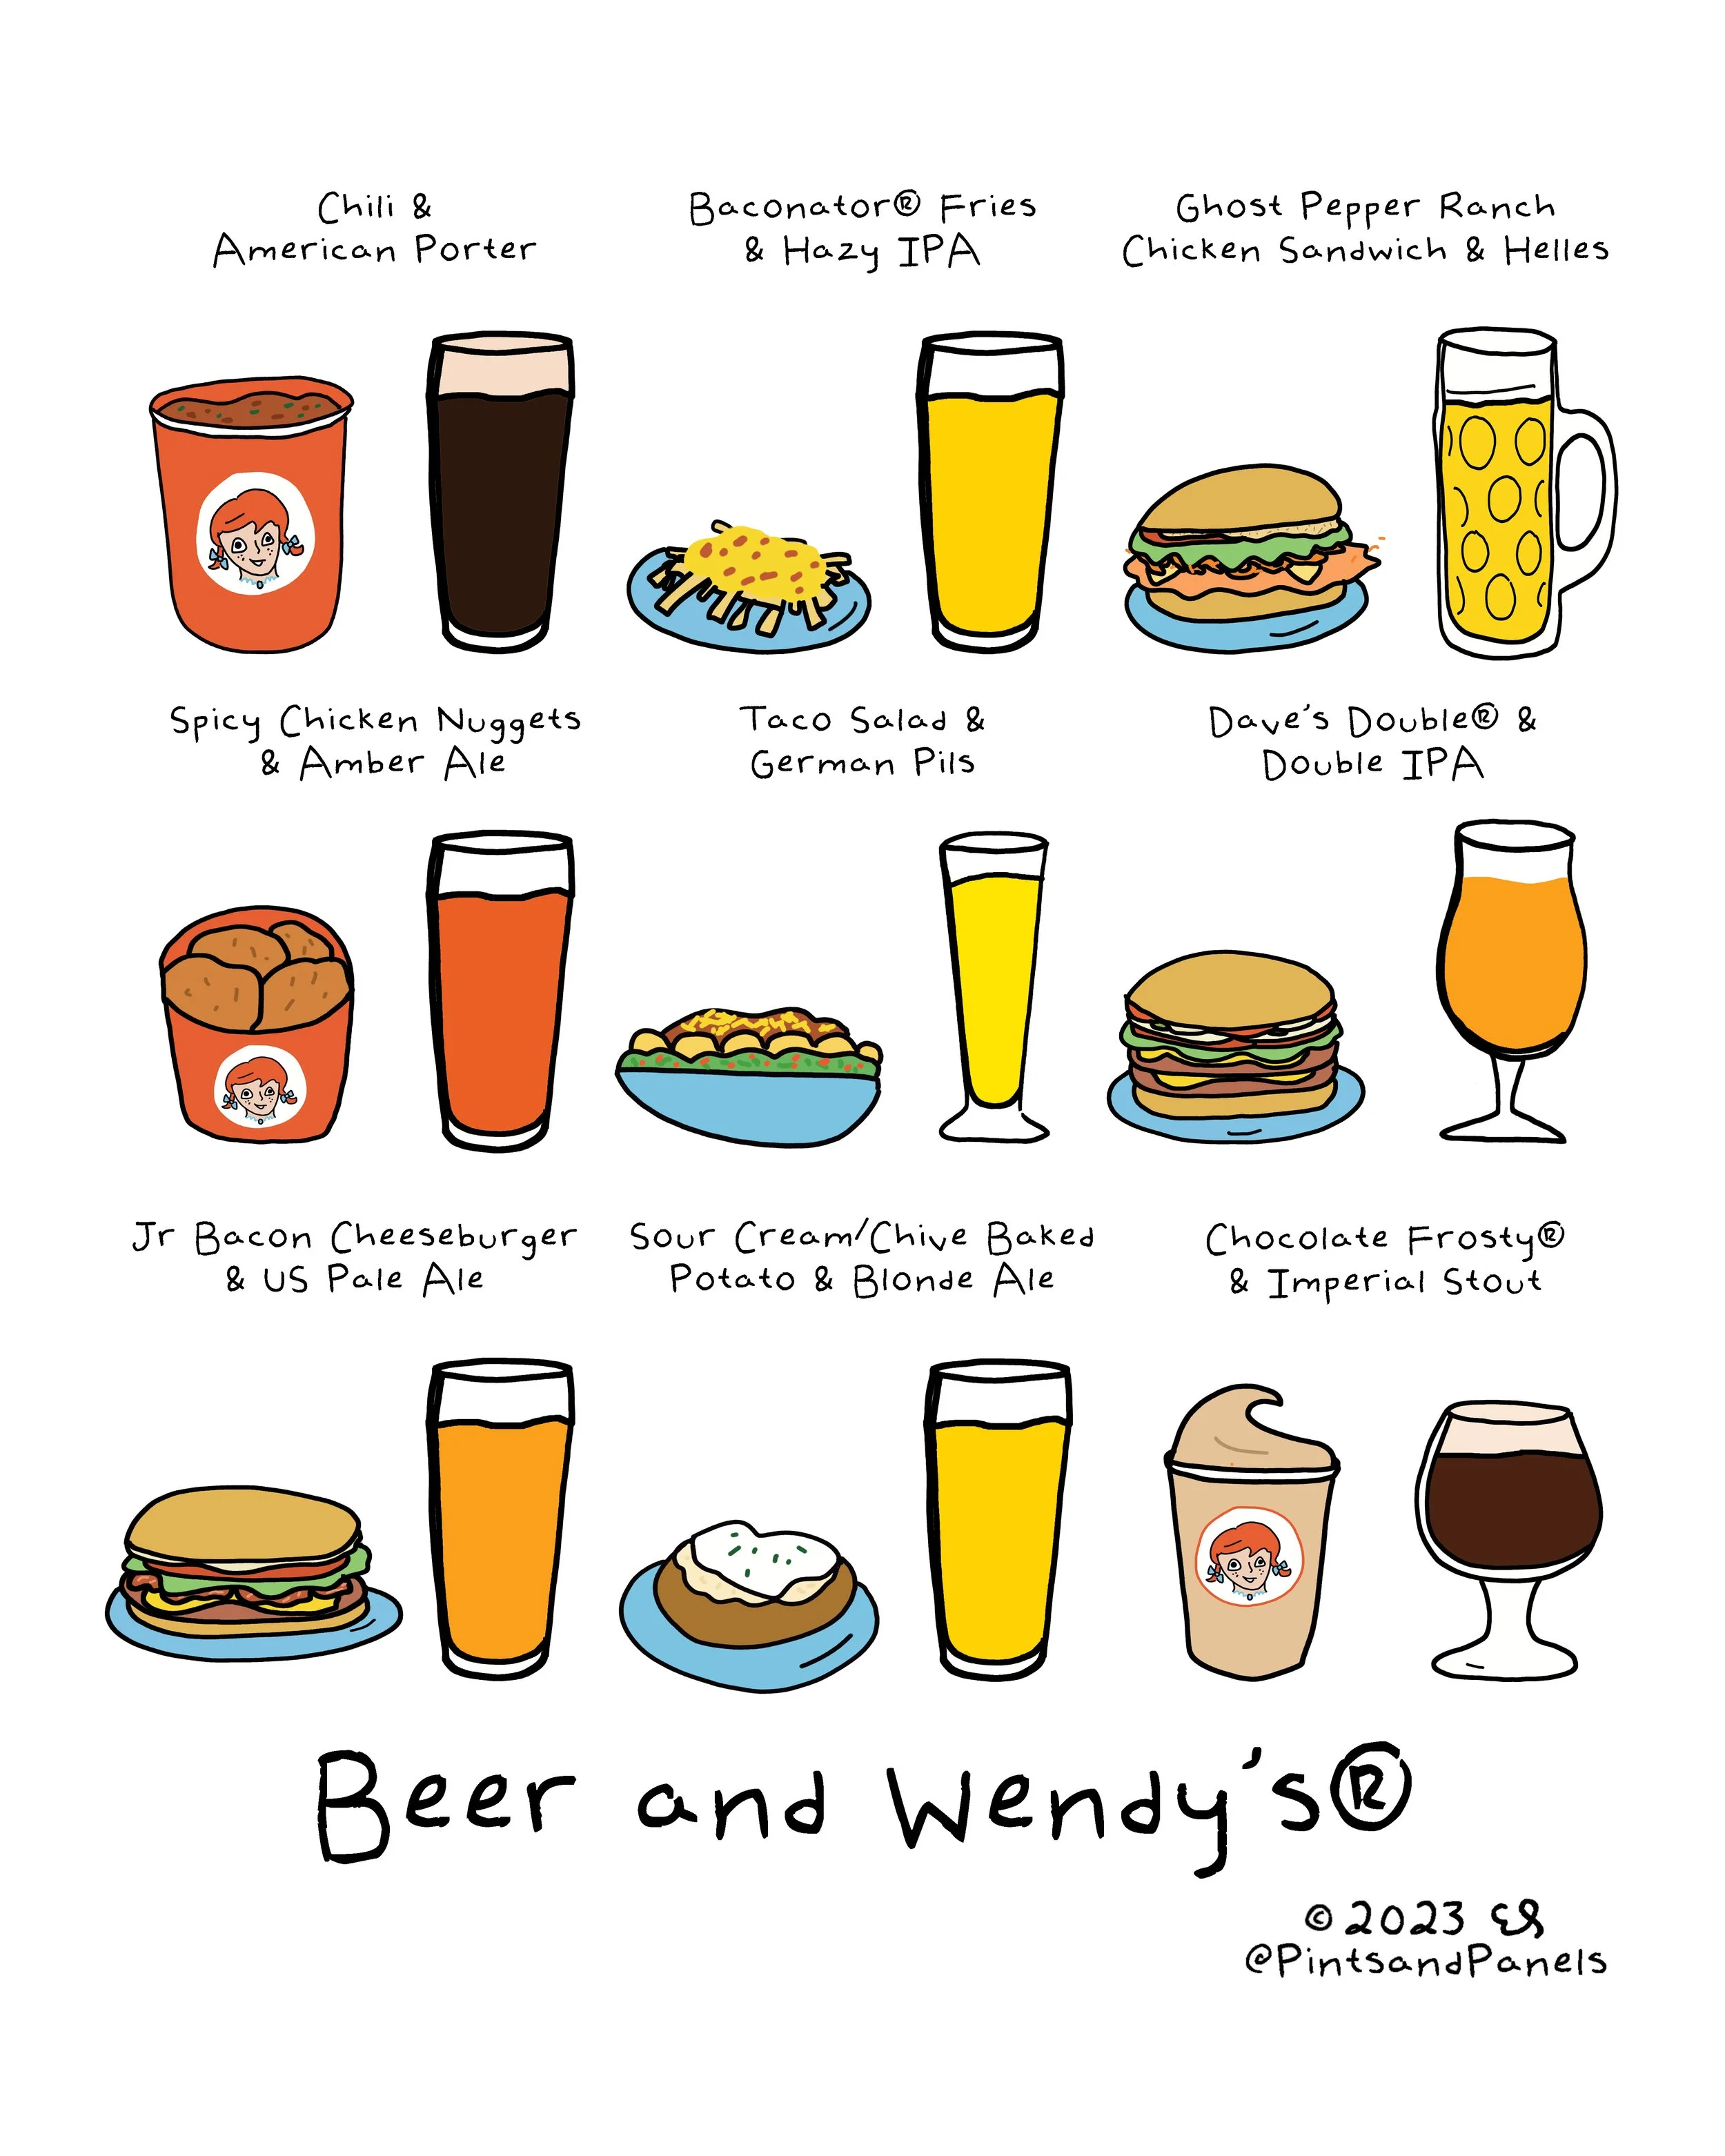 Chili &
American Porter
Baconator® Fries
& Hazy IPA
Ghost Pepper Ranch
Chicken Sandwich & Helles
Spicy Chicken Nuggets
& Amber Ale
Taco Salad &
German Pils
Dave's Double® &
Double IPA
Jr Bacon Cheeseburger
& US Pale Ale
Sour Cream/Chive Baked
Potato & Blonde Ale
Chocolate Frosty®
& Imperial Stout
Beer and Wendy's®
©2023 ES
@PintsandPanels